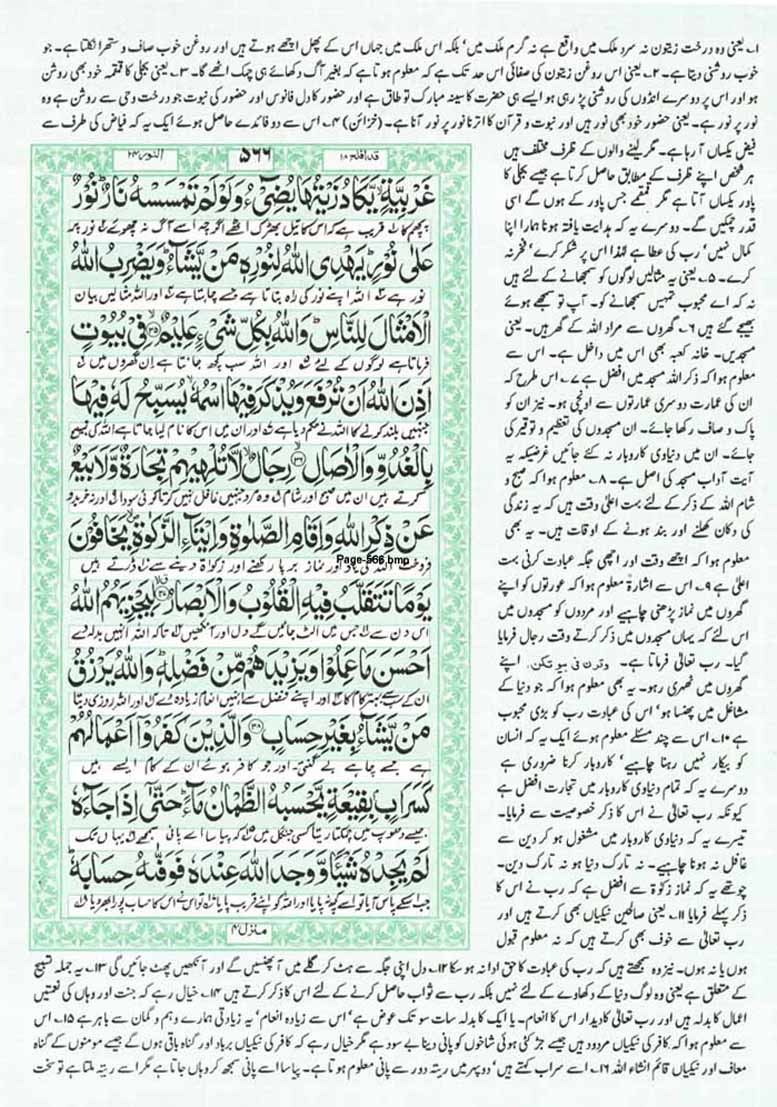 ۱؎ یعنی وہ درخت زیتون نہ سرد ملک میں واقع ہے نہ گرم ملک میں' بلکہ اس ملک میں جہاں اس کے پھل اچھے ہوتے ہیں اور روغن خوب صاف و ستھرا نکلتا ہے۔ جو
خوب روشنی دیتا ہے۔ ۲؎ یعنی اس روغن زیتون کی صفائی اس حد تک ہے کہ معلوم ہوتا ہے کہ بغیر آگ دکھائے ہی چمک اٹھے گا۔ ۳؎ یعنی بجلی کا قمقمہ خود بھی روشن
ہو اور اس پر دوسرے انڈوں کی روشنی پڑ رہی ہو ایسے ہی حضرت کا سینہ مبارک تو طاق ہے اور حضور کا دل فانوس اور حضور کی نبوت جو درخت وحی سے روشن ہے وہ
نور پر نور ہے۔ یعنی حضور خود بھی نور ہیں اور نبوت و قرآن کا اترنا نور پر نور آنا ہے۔ (خزائن) ۴؎ اس سے دو فائدے حاصل ہوئے ایک یہ کہ فیاض کی طرف سے
فیض یکساں آ رہا ہے۔ مگر لینے والوں کے ظرف مختلف ہیں
ہر شخص اپنے ظرف کے مطابق حاصل کرتا ہے جیسے بجلی کا
پاور یکساں آتا ہے مگر قمقمے جس پاور کے ہوں گے اسی
قدر چمکیں گے۔ دوسرے یہ کہ ہدایت یافتہ ہونا ہمارا اپنا
کمال نہیں' رب کی عطا ہے لہٰذا اس پر شکر کرے' فخر نہ
کرے۔ ۵؎ یعنی یہ مثالیں لوگوں کو سمجھانے کے لئے ہیں
نہ کہ اے محبوب تمہیں سمجھانے کو۔ آپ تو سمجھے ہوئے
بھیجے گئے ہیں ۶؎ گھروں سے مراد اللہ کے گھر ہیں۔ یعنی
مسجدیں۔ خانہ کعبہ بھی اس میں داخل ہے۔ اس سے
معلوم ہوا کہ ذکر اللہ مسجد میں افضل ہے ۷؎ اس طرح کہ
ان کی عمارت دوسری عمارتوں سے اونچی ہو۔ نیز ان کو
پاک و صاف رکھا جائے۔ ان مسجدوں کی تعظیم و توقیر کی
جائے۔ ان میں دنیاوی کاروبار نہ کئے جائیں غرضیکہ یہ
آیت آداب مسجد کی اصل ہے۔ ۸؎ معلوم ہوا کہ صبح و
شام اللہ کے ذکر کے لئے بہت اعلیٰ وقت ہیں کہ یہ زندگی
کی دکان کھلنے اور بند ہونے کے اوقات ہیں۔ یہ بھی
معلوم ہوا کہ اچھے وقت اور اچھی جگہ عبادت کرنی بہت
اعلیٰ ہے ۹؎ اس سے اشارۃً معلوم ہوا کہ عورتوں کو اپنے
گھروں میں نماز پڑھنی چاہیے اور مردوں کو مسجدوں میں
اس لئے کہ یہاں مسجدوں میں ذکر کرتے وقت رجال فرمایا
گیا۔ رب تعالیٰ فرماتا ہے۔ وقرن فی بیوتکن، اپنے
گھروں میں ٹھہری رہو۔ یہ بھی معلوم ہوا کہ جو دنیا کے
مشاغل میں پھنسا ہو' اس کی عبادت رب کو بڑی محبوب
ہے ۱۰؎ اس سے چند مسئلے معلوم ہوئے ایک یہ کہ انسان
کو بیکار نہیں رہنا چاہیے' کاروبار کرنا ضروری ہے
دوسرے یہ کہ تمام دنیاوی کاروبار میں تجارت افضل ہے
کیونکہ رب تعالیٰ نے اس کا ذکر خصوصیت سے فرمایا۔
تیسرے یہ کہ دنیاوی کاروبار میں مشغول ہو کر دین سے
غافل نہ ہونا چاہیے۔ نہ تارک دنیا ہو نہ تارک دین۔
چوتھے یہ کہ نماز زکوٰۃ سے افضل ہے کہ رب نے اس کا
ذکر پہلے فرمایا ۱۱؎ یعنی صالحین نیکیاں بھی کرتے ہیں اور
رب تعالیٰ سے خوف بھی کرتے ہیں کہ نہ معلوم قبول
قد افلح ۱۸
۵۶۶
النور ۲۴
غَرْبِيَّةٍ يَّكَادُ زَيْتُهَا يُضِيْٓءُ وَلَوْ لَمْ تَمْسَسْهُ نَارٌ نُوْرٌ
پچھم کا قریب ہے کہ اس کا تیل بھڑک اٹھے اگرچہ اسے آگ نہ چھوئے نور پر
عَلٰى نُوْرٍ يَهْدِى اللّٰهُ لِنُوْرِهٖ مَنْ يَّشَآءُ وَيَضْرِبُ اللّٰهُ
نور ہے اللہ اپنے نور کی راہ بتاتا ہے جسے چاہتا ہے اور اللہ مثالیں بیان
الْاَمْثَالَ لِلنَّاسِ وَاللّٰهُ بِكُلِّ شَىْءٍ عَلِيْمٌ ۳۵ فِىْ بُيُوْتٍ
فرماتا ہے لوگوں کے لئے اور اللہ سب کچھ جانتا ہے ان گھروں میں
اَذِنَ اللّٰهُ اَنْ تُرْفَعَ وَيُذْكَرَ فِيْهَا اسْمُهٗ يُسَبِّحُ لَهٗ فِيْهَا
جنہیں بلند کرنے کا اللہ نے حکم دیا ہے اور ان میں اس کا نام لیا جاتا ہے اللہ کی تسبیح
بِالْغُدُوِّ وَالْاٰصَالِ ۳۶ رِجَالٌ لَّا تُلْهِيْهِمْ تِجَارَةٌ وَّلَا بَيْعٌ
کرتے ہیں ان میں صبح اور شام وہ مرد جنہیں غافل نہیں کرتا کوئی سودا اور نہ خرید و
عَنْ ذِكْرِ اللّٰهِ وَاِقَامِ الصَّلٰوةِ وَاِيْتَآءِ الزَّكٰوةِ يَخَافُوْنَ
فروخت اللہ کی یاد اور نماز برپا رکھنے اور زکوٰۃ دینے سے ڈرتے ہیں
Page-566.bmp
يَوْمًا تَتَقَلَّبُ فِيْهِ الْقُلُوْبُ وَالْاَبْصَارُ ۳۷ لِيَجْزِيَهُمُ اللّٰهُ
اس دن سے جس میں الٹ جائیں گے دل اور آنکھیں تاکہ اللہ انہیں بدلہ دے
اَحْسَنَ مَا عَمِلُوْا وَيَزِيْدَهُمْ مِّنْ فَضْلِهٖ وَاللّٰهُ يَرْزُقُ
ان کے سب سے بہتر کام کا اور اپنے فضل سے انہیں انعام زیادہ دے اور اللہ روزی دیتا
مَنْ يَّشَآءُ بِغَيْرِ حِسَابٍ ۳۸ وَالَّذِيْنَ كَفَرُوْٓا اَعْمَالُهُمْ
ہے جسے چاہے بے گنتی اور جو کافر ہوئے ان کے کام ایسے ہیں
كَسَرَابٍ بِقِيْعَةٍ يَّحْسَبُهُ الظَّمْاٰنُ مَآءً حَتّٰٓى اِذَا جَآءَهٗ
جیسے دھوپ میں چمکتا ریتا کسی جنگل میں کہ پیاسا اسے پانی سمجھے یہاں تک
لَمْ يَجِدْهُ شَيْـًٔا وَّوَجَدَ اللّٰهَ عِنْدَهٗ فَوَفّٰىهُ حِسَابَهٗ
جب اسکے پاس آیا تو اسے کچھ نہ پایا اور اللہ کو اپنے قریب پایا تو اس نے اس کا حساب پورا بھر دیا
منزل ۴
ہوں یا نہ ہوں۔ نیز وہ سمجھتے ہیں کہ رب کی عبادت کا حق ادا نہ ہو سکا ۱۲؎ دل اپنی جگہ سے ہٹ کر گلے میں آ پھنسیں گے اور آنکھیں پھٹ جائیں گی ۱۳؎ یہ جملہ تسبیح
کے متعلق ہے یعنی وہ لوگ دنیا کے دکھاوے کے لئے نہیں بلکہ رب سے ثواب حاصل کرنے کے لئے اس کا ذکر کرتے ہیں ۱۴؎ خیال رہے کہ جنت اور وہاں کی نعمتیں
اعمال کا بدلہ ہیں اور رب تعالیٰ کا دیدار اس کا انعام۔ یا ایک کا بدلہ سات سو تک عوض ہے' اس سے زیادہ انعام' یہ زیادتی ہمارے وہم و گمان سے باہر ہے ۱۵؎ اس
سے معلوم ہوا کہ کافر کی نیکیاں مردود ہیں جیسے جڑ کٹی ہوئی شاخوں کو پانی دینا بے سود ہے مگر خیال رہے کہ کافر کی نیکیاں برباد اور گناہ باقی ہوں گے جیسے مومنوں کے گناہ
معاف اور نیکیاں قائم انشاء اللہ ۱۶؎ اسے سراب کہتے ہیں' دوپہر میں ریتہ دور سے پانی معلوم ہوتا ہے۔ پیاسا اسے پانی سمجھ کر وہاں جاتا ہے مگر اسے ریتہ ملتا ہے تو سخت